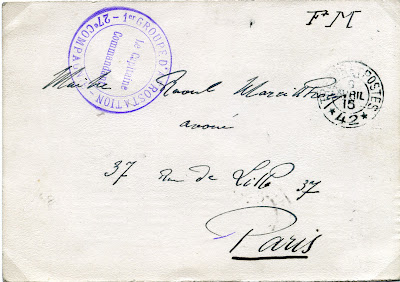 F M
1er GROUPE D'AÉROSTATION - 27e COMPAGNIE
Le Capitaine
Commandant
Maître Raoul
avoué
37 Rue de Lille 37
Paris
POSTES
AVRIL
15
* 42 *